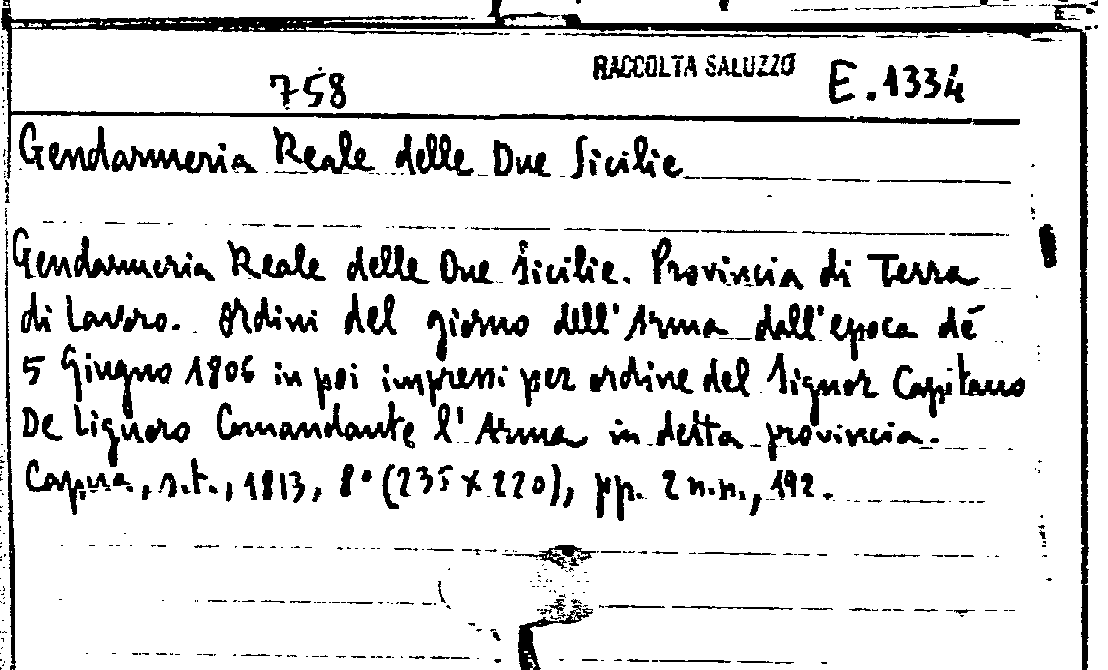 758 RACCOLTA SALUZZO E.1334
Gendarmeria Reale delle Due Sicilie
Gendarmeria Reale delle Due Sicilie. Provincia di Terra
di Lavoro. Ordini del giorno dell'Arma dall'epoca de'
5 Giugno 1806 in poi impressi per ordine del Signor Capitano
De Liguoro Comandante l'Arma in detta provincia.
Capua, s.t., 1813, 8° (235 x 220), pp. 2 n.n., 192.